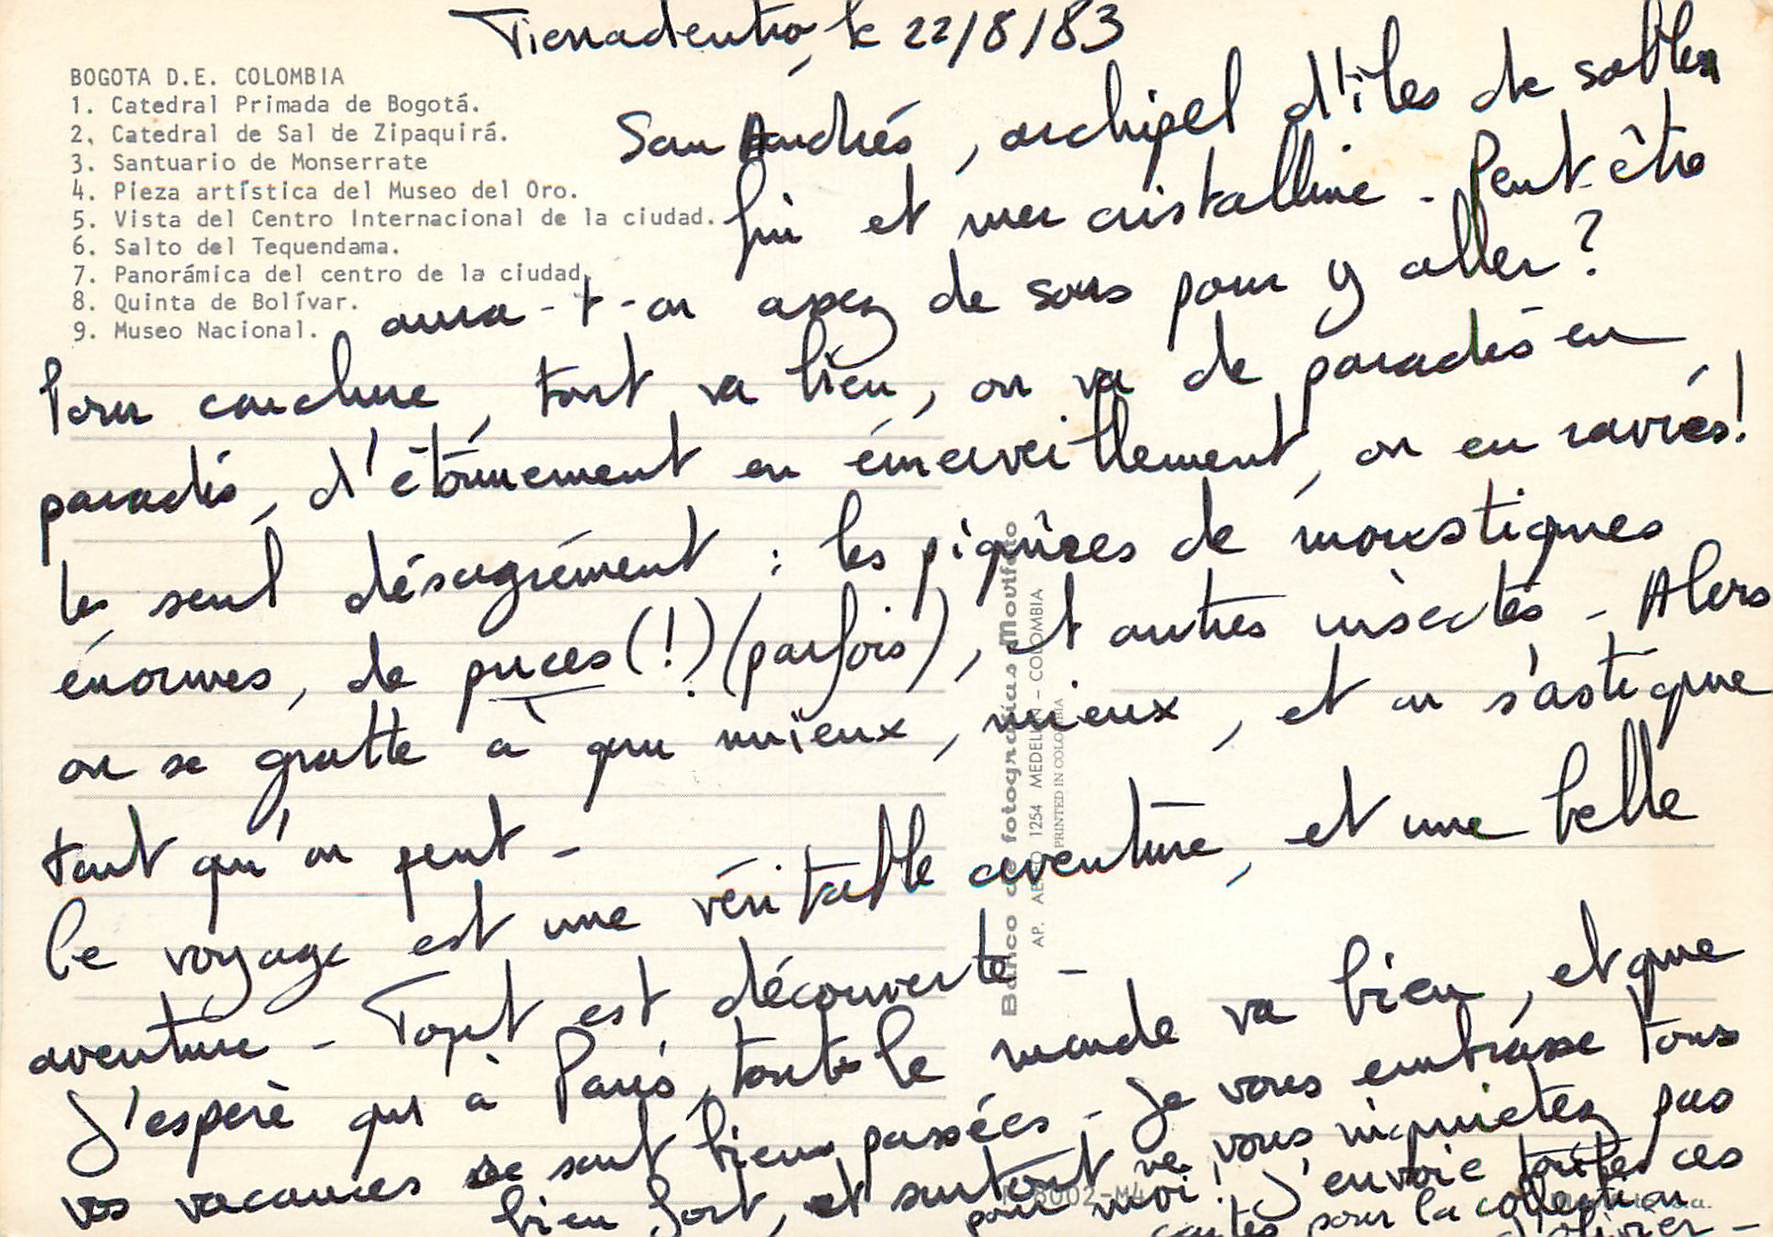 Tierradentro, le 22/8/83
BOGOTA D.E. COLOMBIA
1. Catedral Primada de Bogotá.
2. Catedral de Sal de Zipaquirá.
3. Santuario de Monserrate
4. Pieza artística del Museo del Oro.
5. Vista del Centro Internacional de la ciudad.
6. Salto del Tequendama.
7. Panorámica del centro de la ciudad.
8. Quinta de Bolívar.
9. Museo Nacional.
San Andrés, archipel d'îles de sables
fin et mer cristalline - Peut-être
aura-t-on assez de sous pour y aller ?
Pour conclure, tout va bien, on va de paradis en
paradis, d'étonnement en émerveillement, on en ravies !
le seul désagrément : les piqûres de moustiques
énormes, de puces (!) (parfois), et autres insectes - Alors
on se gratte à qui mieux, mieux, et on s'astique
tant qu'on peut -
Le voyage est une véritable aventure, et une belle
aventure - Tout est découverte -
J'espère qu'à Paris, tout le monde va bien, et que
vos vacances se sont bien passées - Je vous embrasse tous
bien fort, et surtout ne vous inquietez pas
pour moi ! J'envoie toutes ces
cartes pour la collection
d'olivier -
Banco de fotografías Movifoto
AP. AEREO 1254 MEDELLIN - COLOMBIA
PRINTED IN COLOMBIA
8002-M4